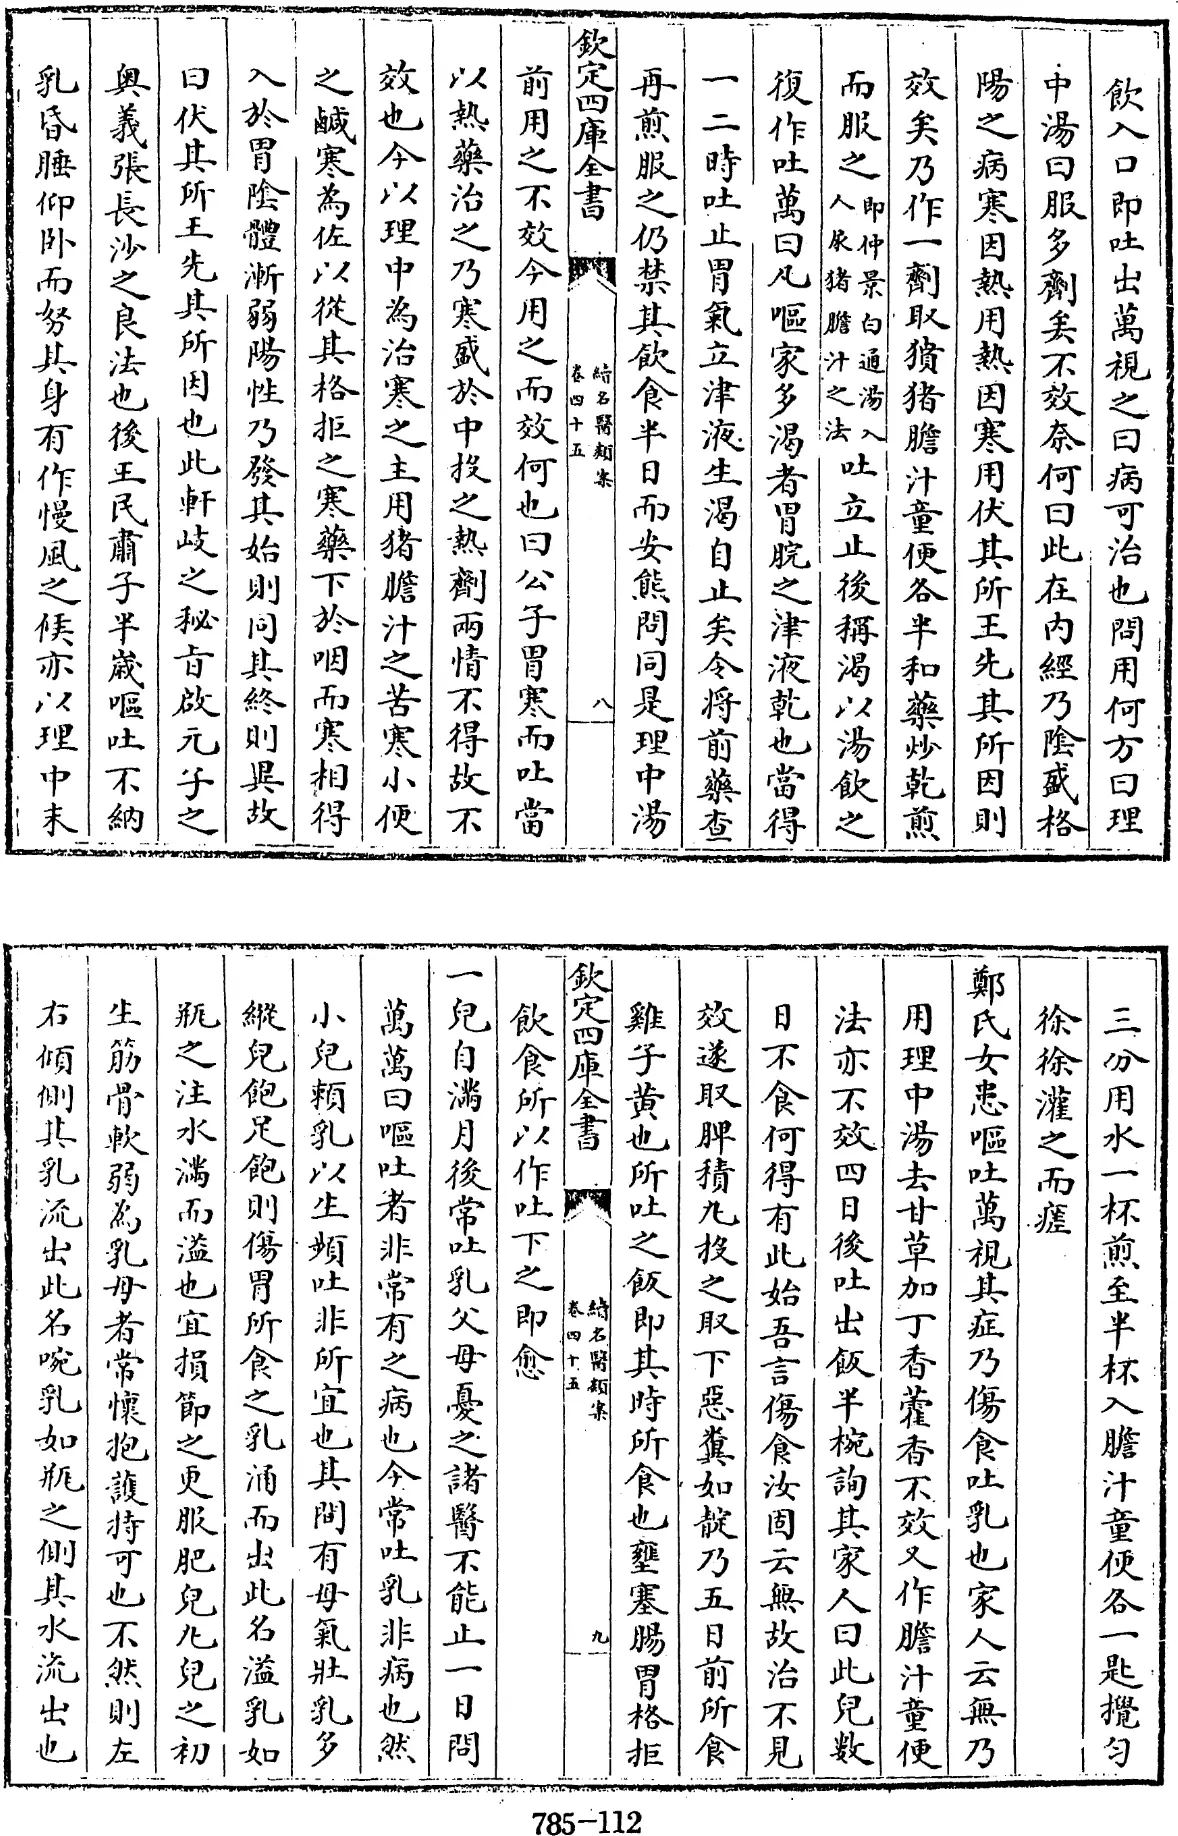 飲入口即吐出萬視之曰病可治也問用何方曰理
中湯曰服多劑矣不效奈何曰此在内經乃陰盛格
陽之病寒因熱用熱因寒用伏其所王先其所因則
效矣乃作一劑取獖猪膽汁童便各半和藥炒乾煎
而服之即仲景白通湯入人尿猪膽汁之法吐立止後稱渴以湯飲之
復作吐萬曰凡嘔家多渴者胃脘之津液乾也當得
一二時吐止胃氣立津液生渴自止矣令將前藥查
再煎服之仍禁其飲食半日而安熊問同是理中湯
欽定四庫全書
續名醫類案
卷四十五
八
前用之不效今用之而效何也曰公子胃寒而吐當
以熱藥治之乃寒盛於中投之熱劑兩情不得故不
效也今以理中為治寒之主用猪膽汁之苦寒小便
之鹹寒為佐以從其格拒之寒藥下於咽而寒相得
入於胃陰體漸弱陽性乃發其始則同其終則異故
曰伏其所王先其所因也此軒岐之秘旨啟元子之
奥義張長沙之良法也後王民肅子半嵗嘔吐不納
乳昏睡仰卧而努其身有作慢風之候亦以理中末
三分用水一杯煎至半杯入膽汁童便各一匙攪匀
徐徐灌之而瘥
鄭氏女患嘔吐萬視其症乃傷食吐乳也家人云無乃
用理中湯去甘草加丁香藿香不效又作膽汁童便
法亦不效四日後吐出飯半椀詢其家人曰此兒數
日不食何得有此始吾言傷食汝固云無故治不見
效遂取脾積丸投之取下惡糞如靛乃五日前所食
雞子黄也所吐之飯即其時所食也壅塞腸胃格拒
欽定四庫全書
續名醫類案
卷四十五
九
飲食所以作吐下之即愈
一兒自滿月後常吐乳父母憂之諸醫不能止一日問
萬萬曰嘔吐者非常有之病也今常吐乳非病也然
小兒賴乳以生頻吐非所宜也其間有母氣壯乳多
縱兒飽足飽則傷胃所食之乳涌而出此名溢乳如
瓶之注水滿而溢也宜損節之更服肥兒丸兒之初
生筋骨軟弱為乳母者常懷抱護持可也不然則左
右傾側其乳流出此名哯乳如瓶之側其水流出也
785-112